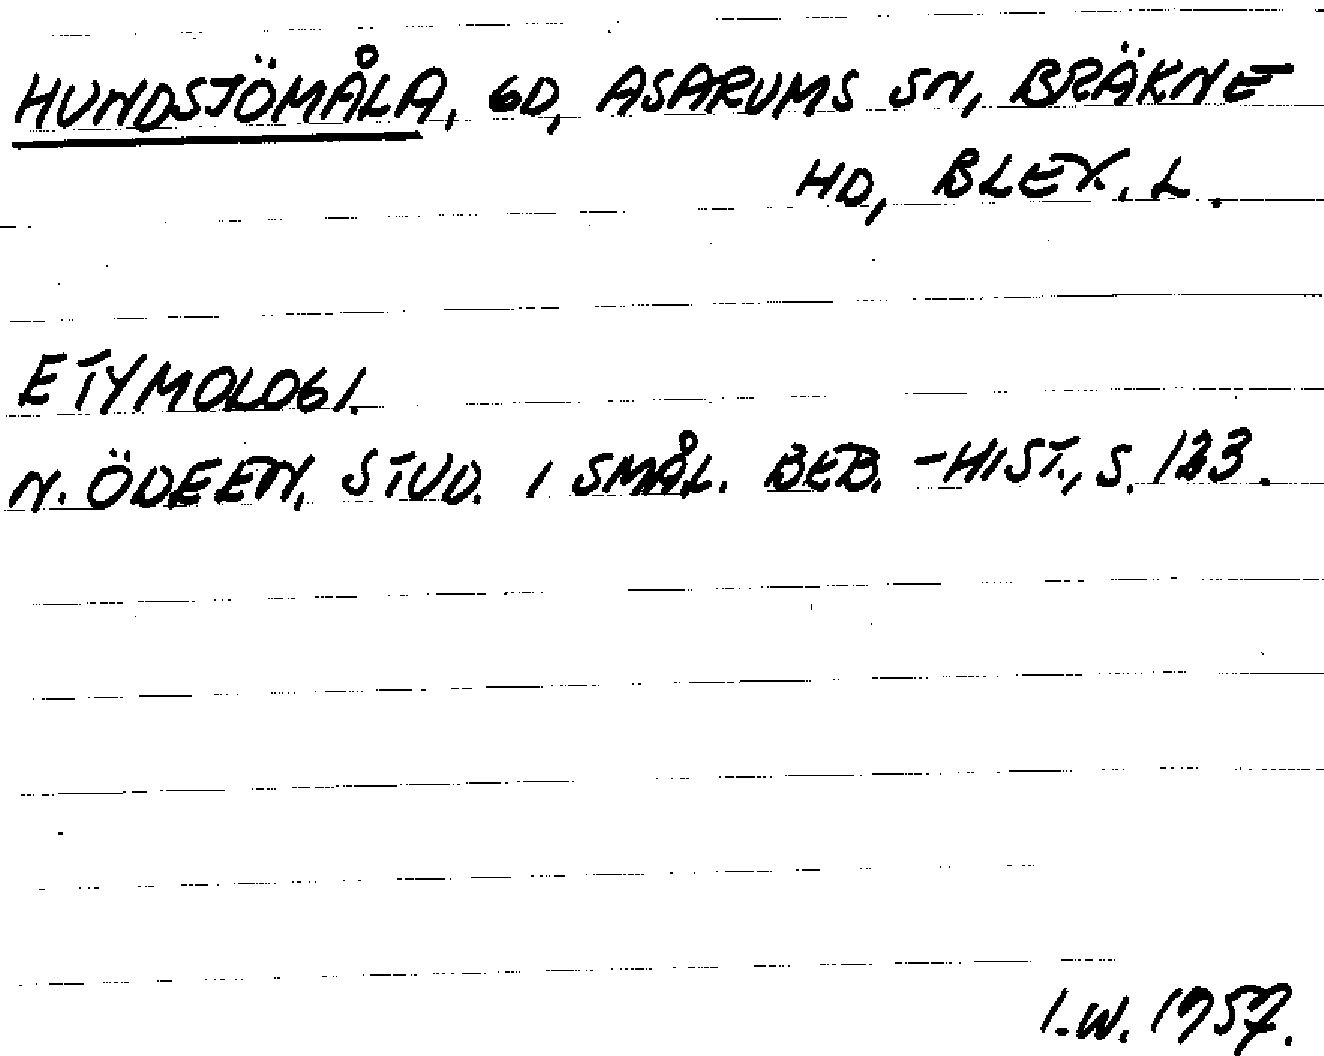 HUNDSJÖMÅLA, GD, ASARUMS SN, BRÄKNE
HD, BLEK. L.
ETYMOLOGI.
N. ÖDEEN, STUD. I SMÅL. BEB.-HIST., S. 123.
I.W. 1957.